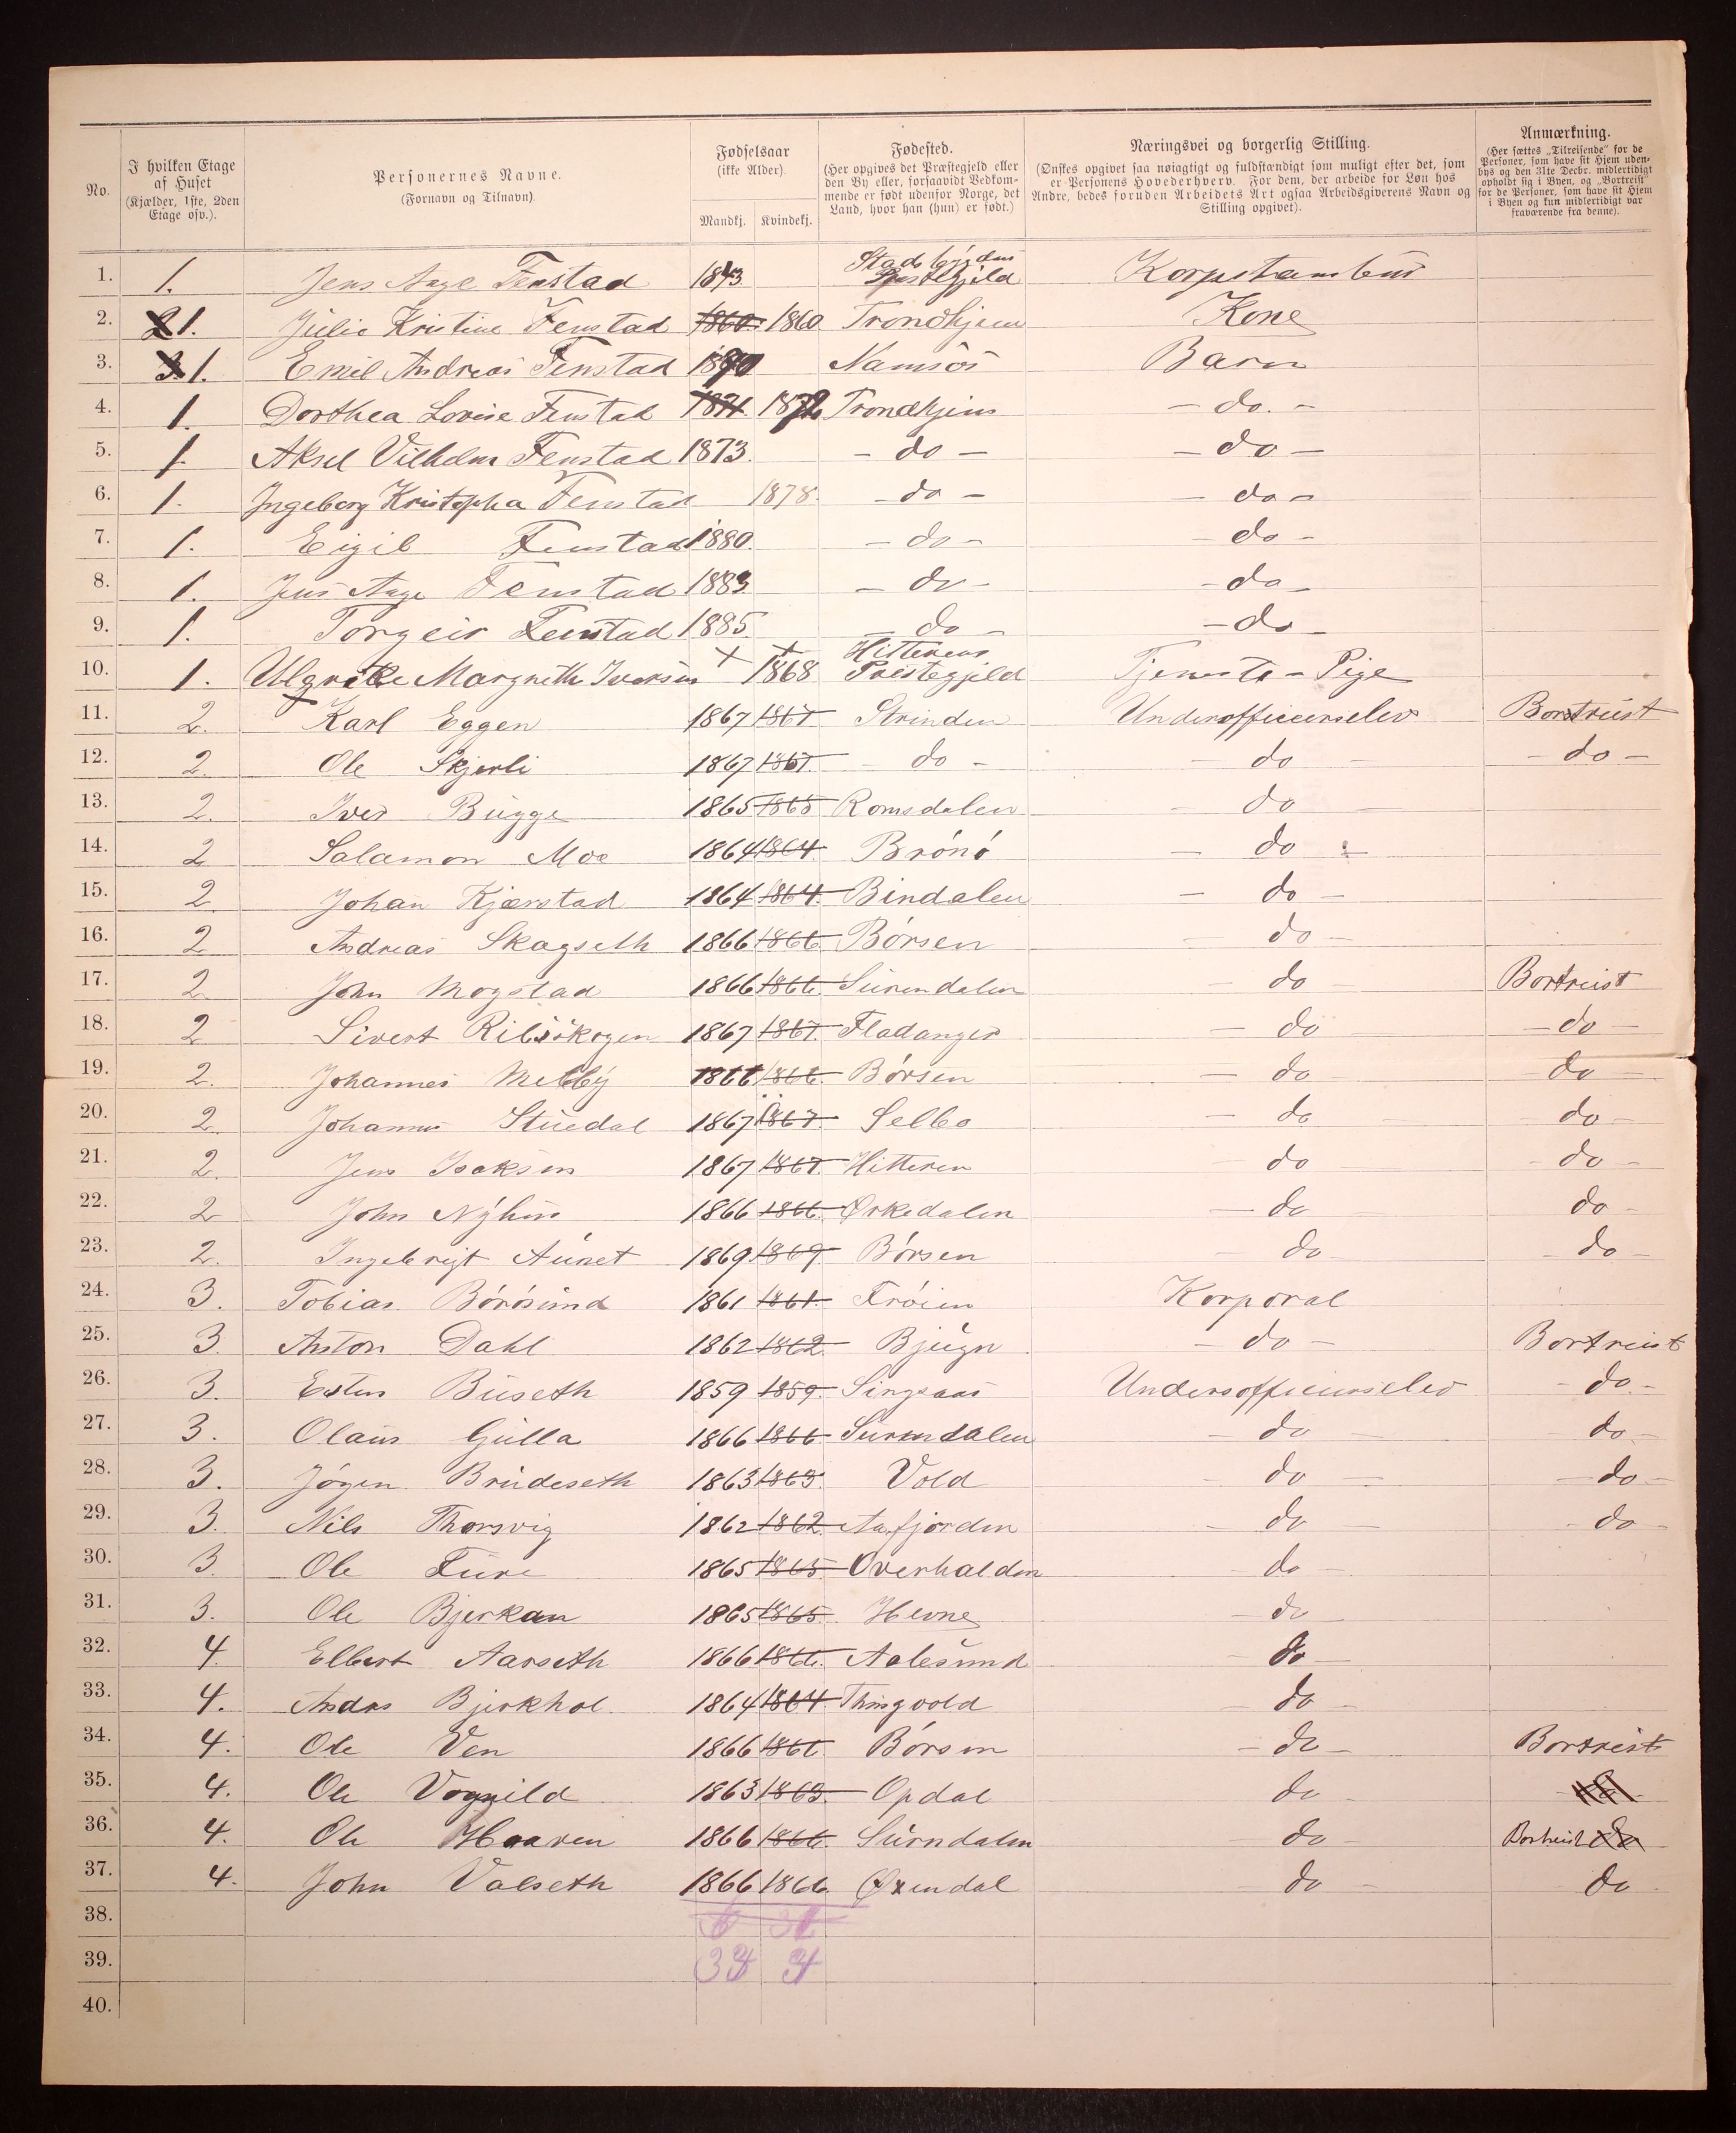 No.
I hvilken Etage af Huset (Kjælder, 1ste, 2den Etage osv.).
Personernes Navne. (Fornavn og Tilnavn).
Fødselsaar (ikke Alder). Mandkj. Kvindekj.
Fødested. (Her opgives det Præstegjeld eller den By eller, forsaavidt Vedkommende er født udenfor Norge, det Land, hvor han (hun) er født.)
Næringsvei og borgerlig Stilling. (Ønskes opgivet saa nøiagtigt og fuldstændigt som muligt efter det, som er Personens Hovederhverv. For dem, der arbeide for Løn hos Andre, bedes foruden Arbeidets Art ogsaa Arbeidsgiverens Navn og Stilling opgivet).
Anmærkning. (Her sættes „Tilreisende" for de Personer, som have sit Hjem udenbys og den 31te Decbr. midlertidigt opholdt sig i Byen, og „Bortreist" for de Personer, som have sit Hjem i Byen og kun midlertidigt var fraværende fra denne).
1. 1. Jens Aage Fenstad 1843 Stadsbygden Prestegjeld Korpstambur
2. 1. Julie Kristine Fenstad 1860. 1860 Trondhjem Kone
3. 1. Emil Andreas Fenstad 1870 Namsos Barn
4. 1. Dorthea Lovise Fenstad 1871. 1872 Trondhjem - do. -
5. 1. Aksel Vilhelm Fenstad 1873. - do - - do -
6. 1. Ingeborg Kristopha Fenstad 1878. - do - - do -
7. 1. Eigil Fenstad 1880. - do - - do -
8. 1. Jens Aage Fenstad 1883 - do - - do -
9. 1. Torgeir Fenstad 1885. - do - - do -
10. 1. Margrethe Iversen 1868 Hitterens Prestegjeld Tjeneste-Pige
11. 2. Karl Eggen 1867 1867 Strinden Underofficerselev Bortreist
12. 2. Ole Skjerli 1867 1867. - do - do - do -
13. 2. Iver Bugge 1865 1865 Romsdalen - do
14. 2 Salamon Moe 1864 1864. Brönö - do -
15. 2 Johan Kjærstad 1864 1864. Bindalen - do -
16. 2 Andreas Skagseth 1866 1866. Börsen - do -
17. 2 John Mogstad 1866 1866. Surendalen - do - Bortreist
18. 2 Sivert Ribsskogen 1867 1867. Fladanger - do - do -
19. 2. Johannes Melby 1866 1866. Börsen - do - do -
20. 2. Johannes Stuedal 1867 1867. Selbo - do - do -
21. 2. Jens Isaksen 1867 1867. Hitteren - do - do -
22. 2 John Nyhus 1866 1866. Orkedalen - do - do -
23. 2. Ingebrigt Aunet 1869 1869 Börsen - do - do -
24. 3. Tobias Börösund 1861 1861. Fröien Korporal
25. 3. Anton Dahl 1862 1862. Bjugn - do - Bortreist
26. 3. Esten Buseth 1859 1859. Singsaas Underofficerselev - do. -
27. 3. Olaus Gulla 1866 1866 Surendalen - do do -
28. 3. Jögen Brudeseth 1863 1863. Vold - do - do -
29. 3. Nils Thorsvig 1862 1862. Aafjorden - do - do -
30. 3. Ole 1865 1865 Overhalden - do -
31. 3. Ole Bjerkan 1865 1865. Hevne - do
32. 4. Elbert Aarseth 1866 1866. Aalesund - do -
33. 4. Anders Bjerkhol 1864 1864. Thingvold - do -
34. 4. Ole Ven 1866 1866. Börsen - do - Bortreist
35. 4. Ole Vognild 1863 1863. Opdal do
36. 4. Ole Haaven 1866 1866. Surndalen do - Bortreist do
37. 4. John Valseth 1866 1866. Øxendal - do - do
38.
39. 33 4
40.